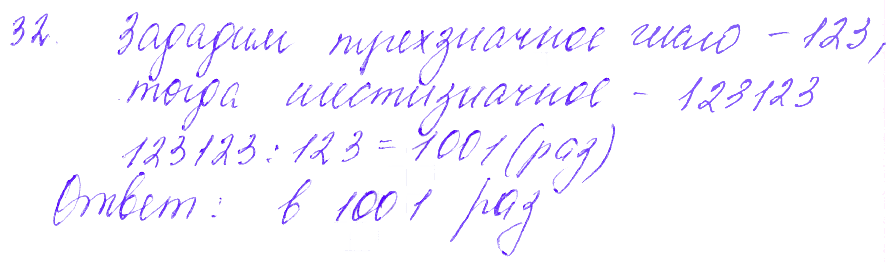 32. Зададим трехзначное число - 123,
тогда шестизначное - 123123
123123 : 123 = 1001 (раз)
Ответ: в 1001 раз